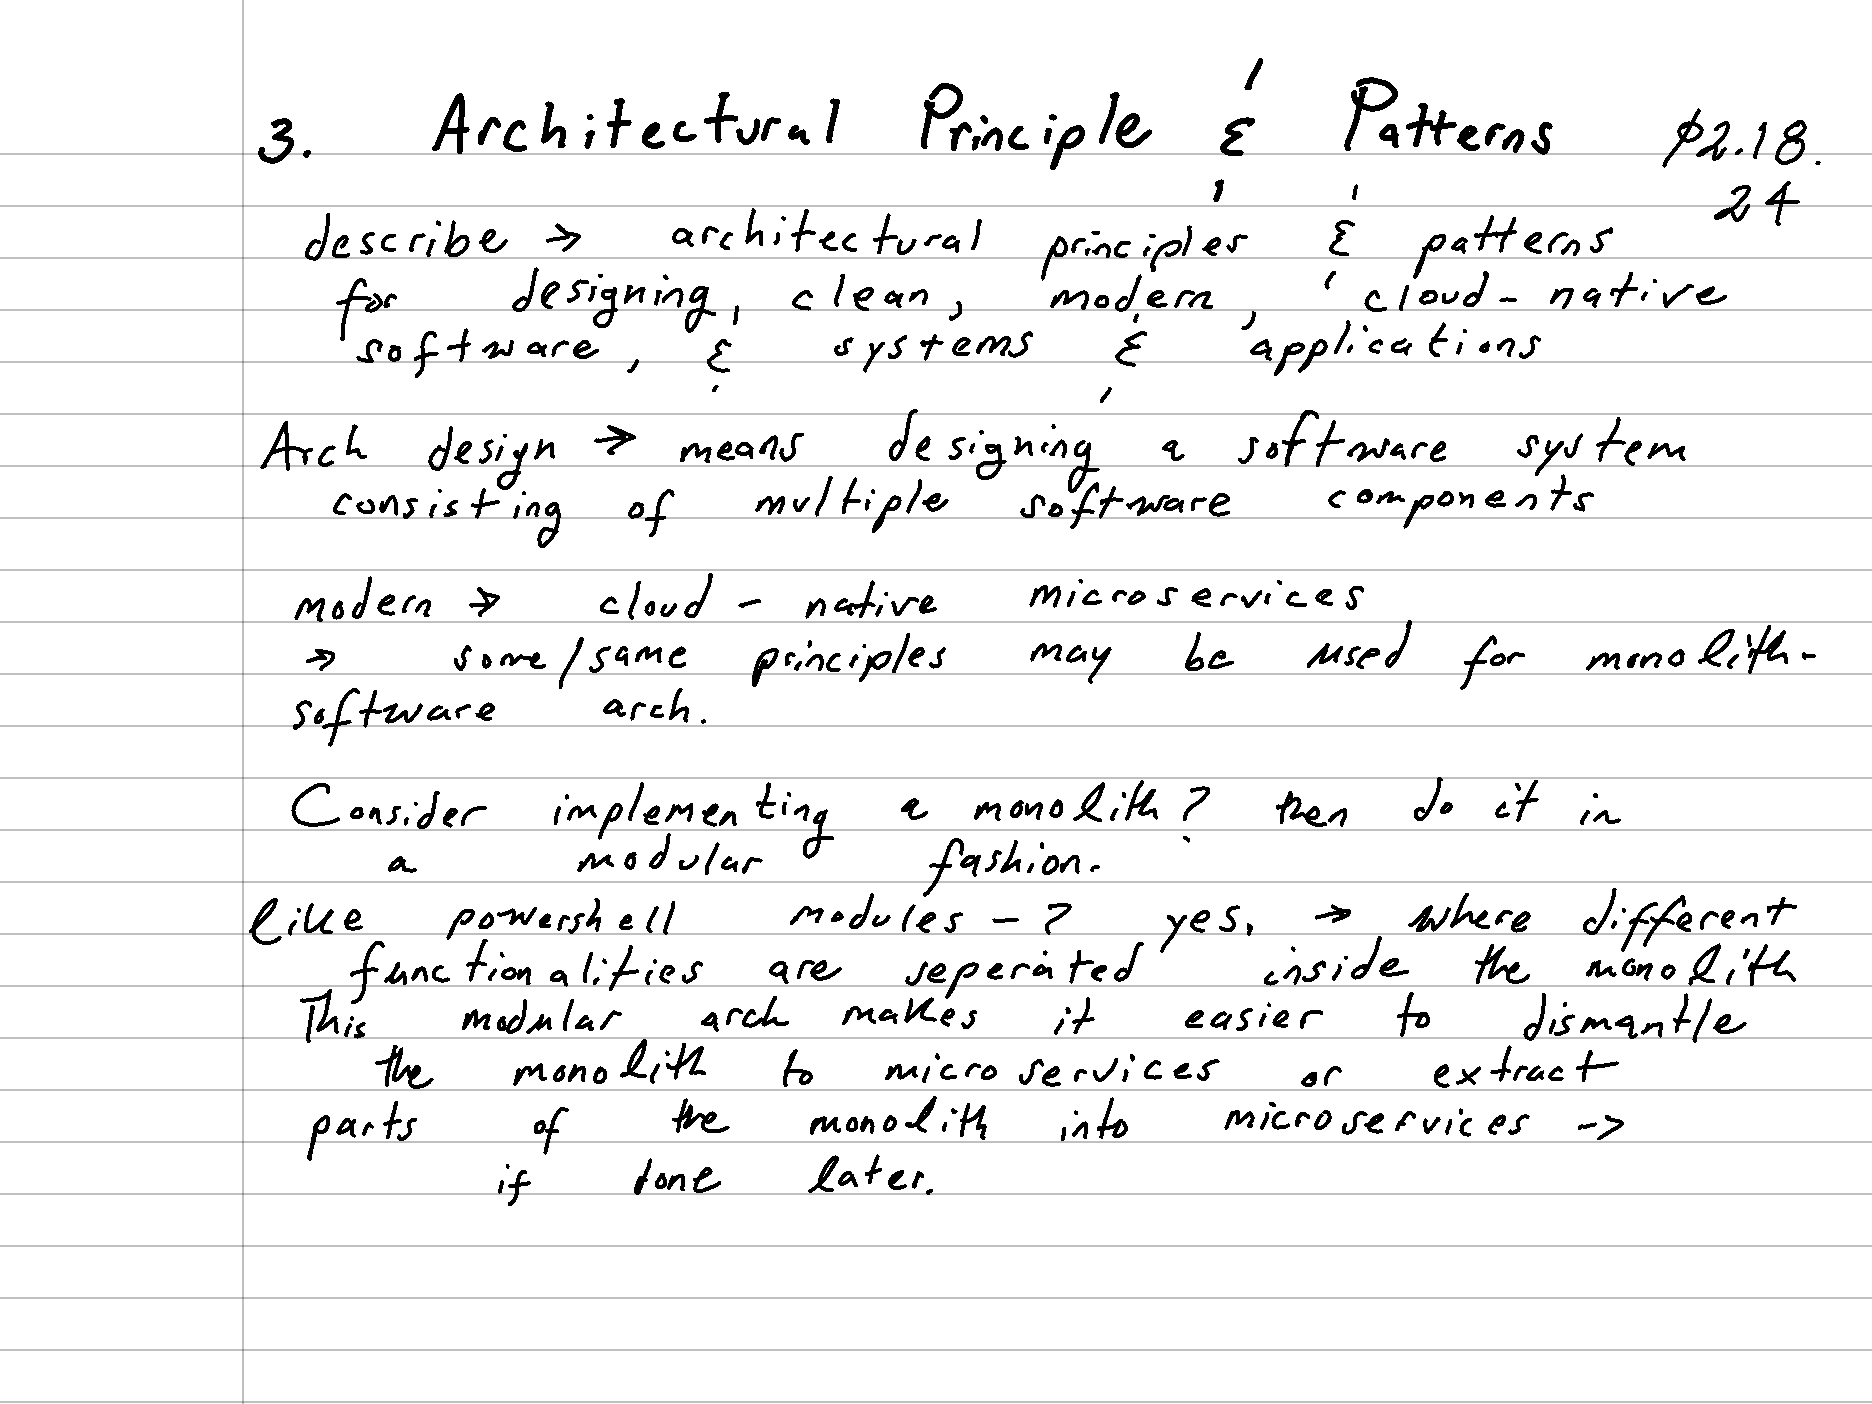 3. Architectural Principle & Patterns 02.18.
24
describe → architectural principles & patterns
for designing, clean, modern, cloud-native
software, & systems & applications
Arch design → means designing a software system
consisting of multiple software components
modern → cloud-native microservices
→ some/same principles may be used for monolith-
software arch.
Consider implementing a monolith? then do it in
a modular fashion.
like powershell modules -? yes, → where different
functionalities are seperated inside the monolith
This modular arch makes it easier to dismantle
the monolith to microservices or extract
parts of the monolith into microservices ->
if done later.